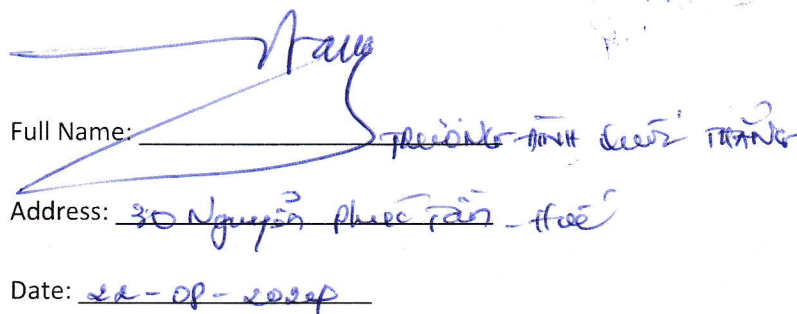 Full Name: TRƯƠNG ĐÌNH QUỐC THẮNG
Address: 30 Nguyễn Phước Tần - Huế
Date: 22 - 08 - 2024